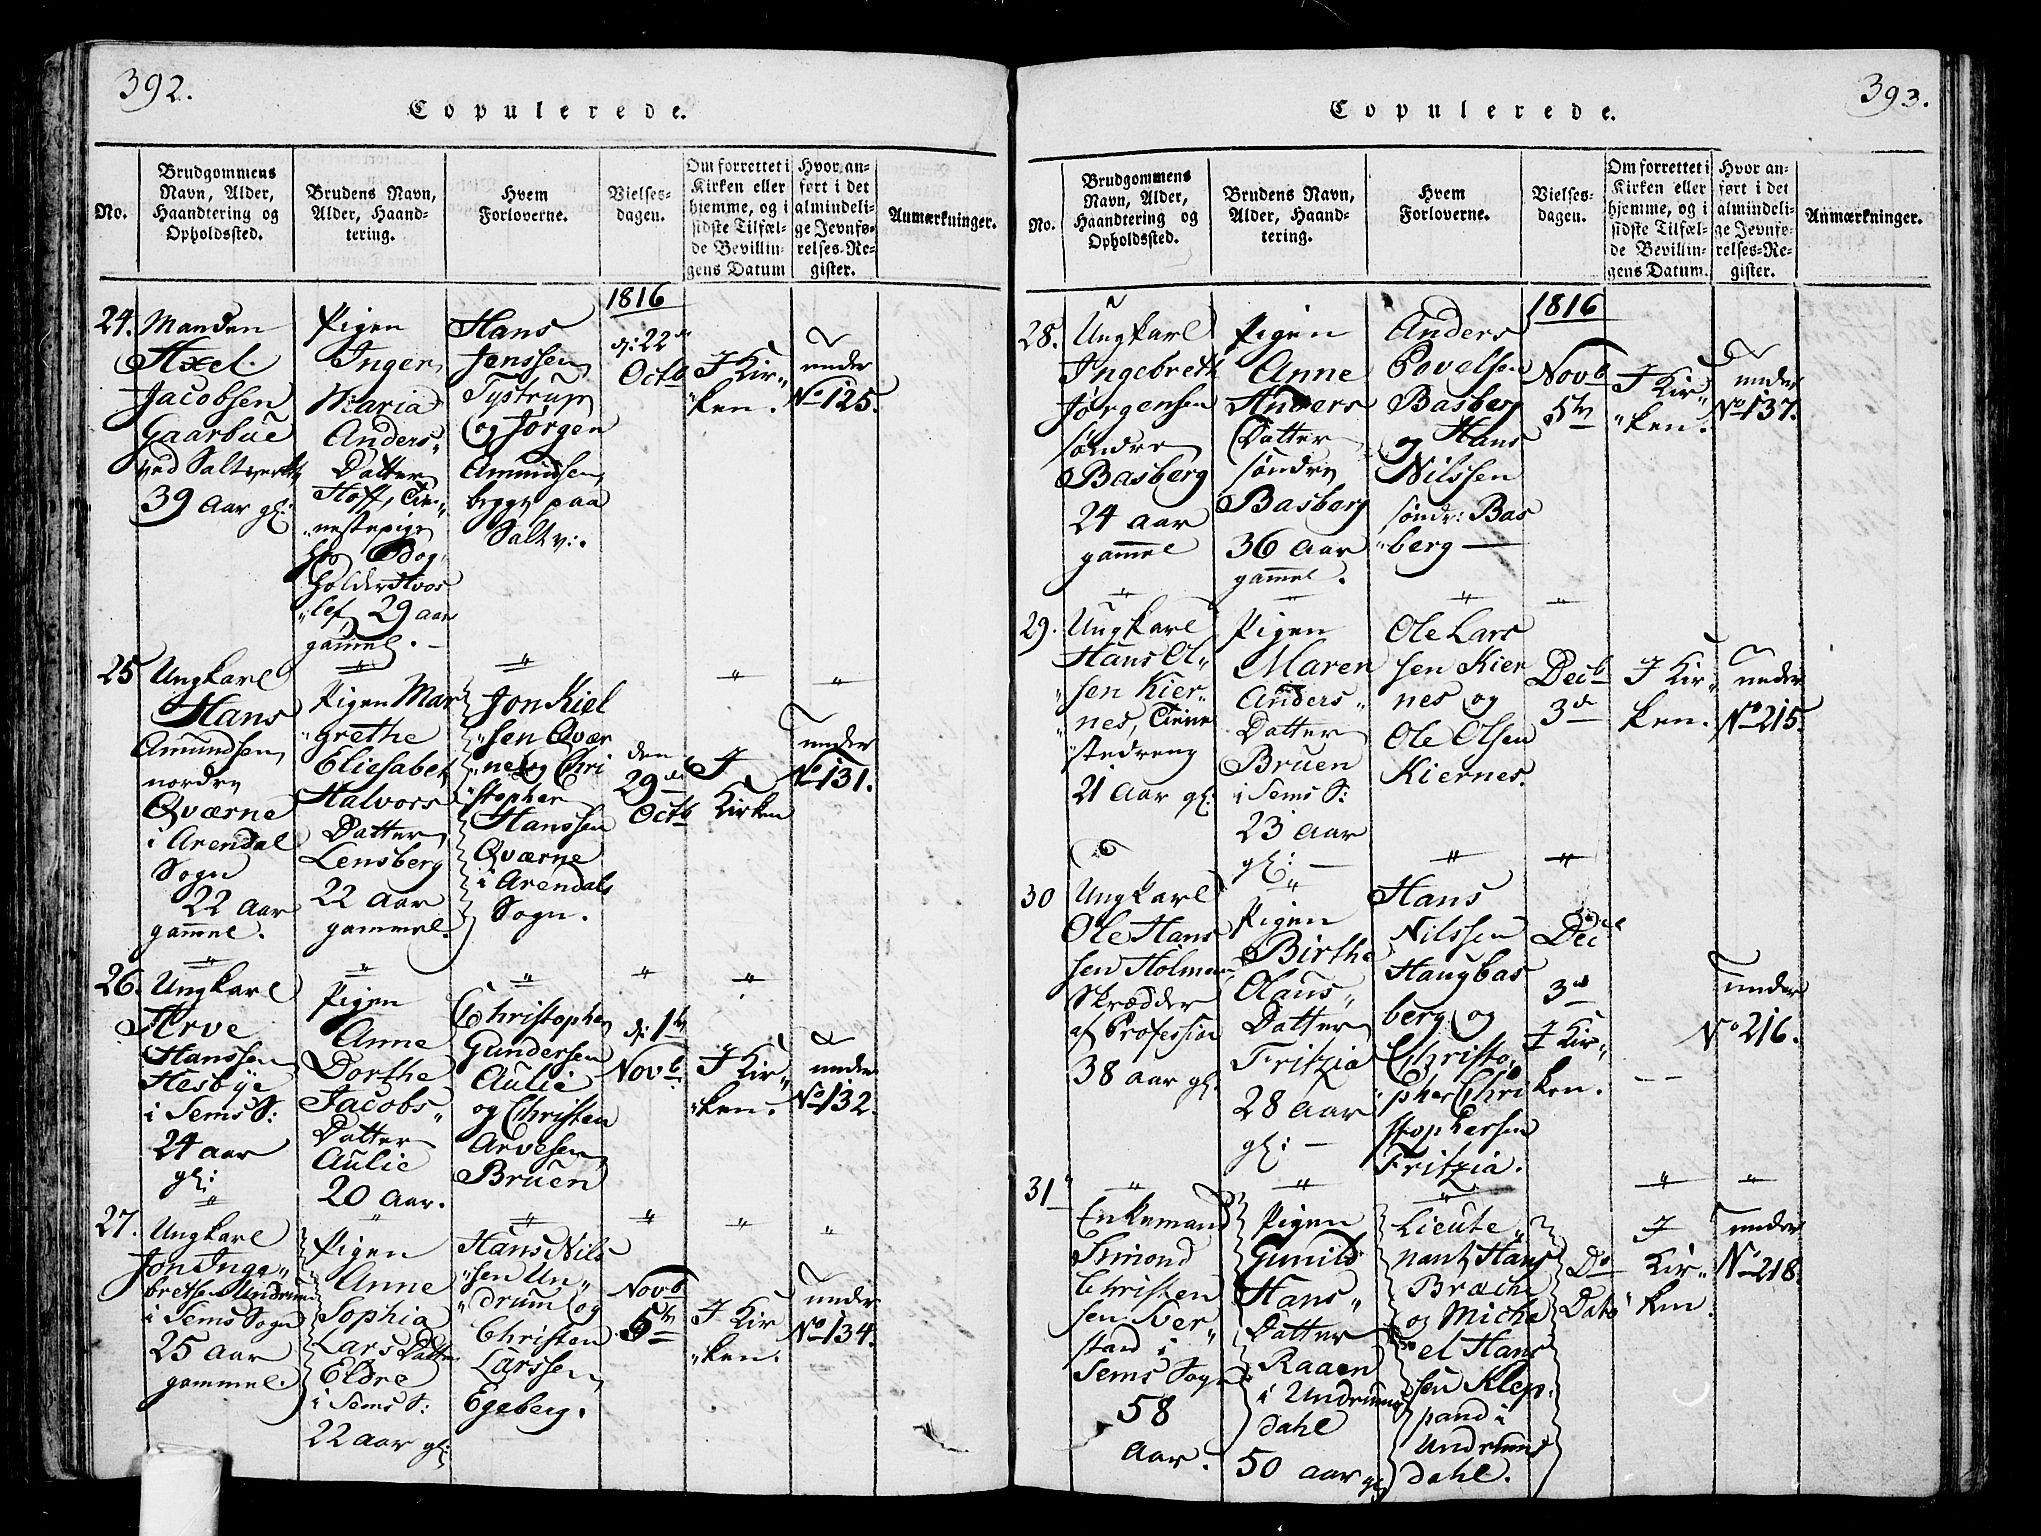 392.
Copulerede.
No.
Brudgommens
Navn, Alder,
Haandtering og
Opholdssted.
Brudens Navn,
Alder, Haand-
tering.
Hvem
Forloverne.
Vielses-
dagen.
Om forrettet i
Kirken eller
hjemme, og i
sidste Tilfæl-
de Bevillin-
gens Datum
Hvor an-
ført i det
almindeli-
ge Jevnfø-
relses-Re-
gister.
Anmærkninger.
24.
Manden
Axel
Jacobsen
Gaarbüe
ved Saltverket
39 Aar gl:
Pigen
Inger
Maria
Anders„
Datter
Hoff, Tie„
„nestepige
hos Bog„
holder Hvos
„lef, 29 aar
gammel.
Hans
Jenssen
Tystrup
og Jørgen
Amundsen
begge paa
Saltv:.
1816
d: 22de
Octb
I Kir„
„ken.
under
No 125.
25
Ungkarl
Hans
Amundsen
nordre
Qværne
i Arendal
Sogn
22 Aar
gammel.
Pigen Mar
„grethe
Eliesabet
Halvors
Datter
Lensberg
22 Aar
gammel.
Jon Kiel
„sen Qvær
„ne og Chri
„stopher
Hanssen
Qværne
i Arendals
Sogn.
den
29de
Octb
I
Kirken
under
No 131.
26.
Ungkarl
Arve
Hanssen
Hesbye
i Sems S:
24 aar
gl:
Pigen
Anne
Dorthe
Jacobs„
Datter
Aulie
20 Aar.
Christopher
Gundersen
Aulie
og Christen
Arvesen
Bruen
d: 1te
Novb.
I Kir„
„ken.
under
No 132.
27.
Ungkarl
Jon Inge„
bretsen Undrum
i Sems Sogn
25 Aar
gammel.
Pigen
Anne
Sophia
Lars Datter
Eldre
i Sems S:
22 aar gl:
Hans Nils
„sen Un„
„drum og
Christen
Larssen
Egeberg.
Novb
5te
I Kir
„ken.
under
No 134.
393.
Copulerede.
No.
Brudgommens
Navn, Alder,
Haandtering og
Opholdssted.
Brudens Navn,
Alder, Haand-
tering.
Hvem
Forloverne.
Vielses-
dagen.
Om forrettet i
Kirken eller
hjemme, og i
sidste Tilfæl-
de Bevillin-
gens Datum.
Hvor an-
ført i det
almindeli-
ge Jevnfø-
relses-Re-
gister.
Anmærkninger.
28.
Ungkarl
Ingebreth
Jørgensen
søndre
Basberg
24 aar
gammel
Pigen
Anne
Anders
Datter
søndre
Basberg
36 Aar
gammel.
Anders
Povelsen
Basberg
og Hans
Nilssen
søndr: Bas
„berg
1816
Novb
5te
I Kir„
„ken.
under
No 137.
29.
Ungkarl
Hans Ol„
„sen Kier„
„nes, Tiene
„stedreng
21 Aar gl:
Pigen
Maren
Anders„
Datter
Bruen
i Sems S:
23 aar
gl:
Ole Lars
sen Kier
nes og
Ole Olsen
Kiernes.
Decb
3de
I Kir„
ken.
under
No 215.
30
Ungkarl
Ole Hans
sen Holmen
Skrædder
af Profession
38 aar gl.
Pigen
Birthe
Olaus„
Datter
Fritzia
28 Aar
gl:
Hans
Nilssen
Haugbas
berg og
Christo„
„pher Chri
stophersen
Fritzia.
Dec
3de
I Kir„
ken.
under
No 216.
31
Enkemand
Simond
Christen
sen Sver„
stad i
Sems Sogn
58
Aar.
Pigen
Gunild
Hans„
Datter
Raaen
i Undrums
dahl
50 aar gl
Lieute„
nant Hans
Bræch
og Micha
el Hans
sen Klep„
pand i
Undrums
dahl.
Do
Dato
I
Kir„
ken.
under
No 218.